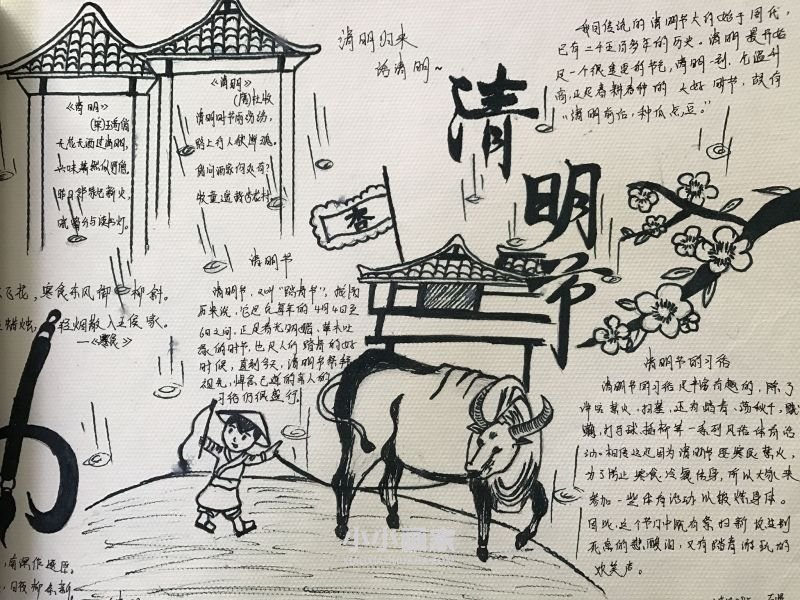 《清明》
(宋)王禹偁
无花无酒过清明,
兴味萧然似野僧。
昨日邻家乞新火,
晓窗分与读书灯。
《清明》
(唐)杜牧
清明时节雨纷纷,
路上行人欲断魂。
借问酒家何处有?
牧童遥指杏花村
清明归来
话清明~
清明节
我国传统的清明节大约始于周代,
已有二千五百多年的历史。清明最开始
是一个很重要的节气,清明一到,气温升
高,正是春耕春种的大好时节,故有
“清明前后,种瓜点豆。”
杏
飞花,寒食东风御柳斜。
蜡烛,轻烟散入五侯家。
——《寒食》
清明节
清明节,又叫“踏青节”,
历来说,它是在每年的4月4日至
6日之间,正是春光明媚、草木吐
绿的时节,也是人们踏青的好
时候,直到今天,清明节祭拜
祖先,悼念已逝的亲人的
习俗仍很盛行。
清明节的习俗
清明节的习俗是丰富有趣的,除了
禁火、扫墓,还有踏青、荡秋千、蹴
鞠、打马球、插柳等一系列风俗体育活
动。相传这是因为清明节要寒食禁火,
为了防止寒食冷餐伤身,所以大家来
参加一些体育活动以锻炼身体。
因此,这个节日中既有祭扫新坟生别
死离的悲酸泪,又有踏青游玩的
欢笑声。
小小画家